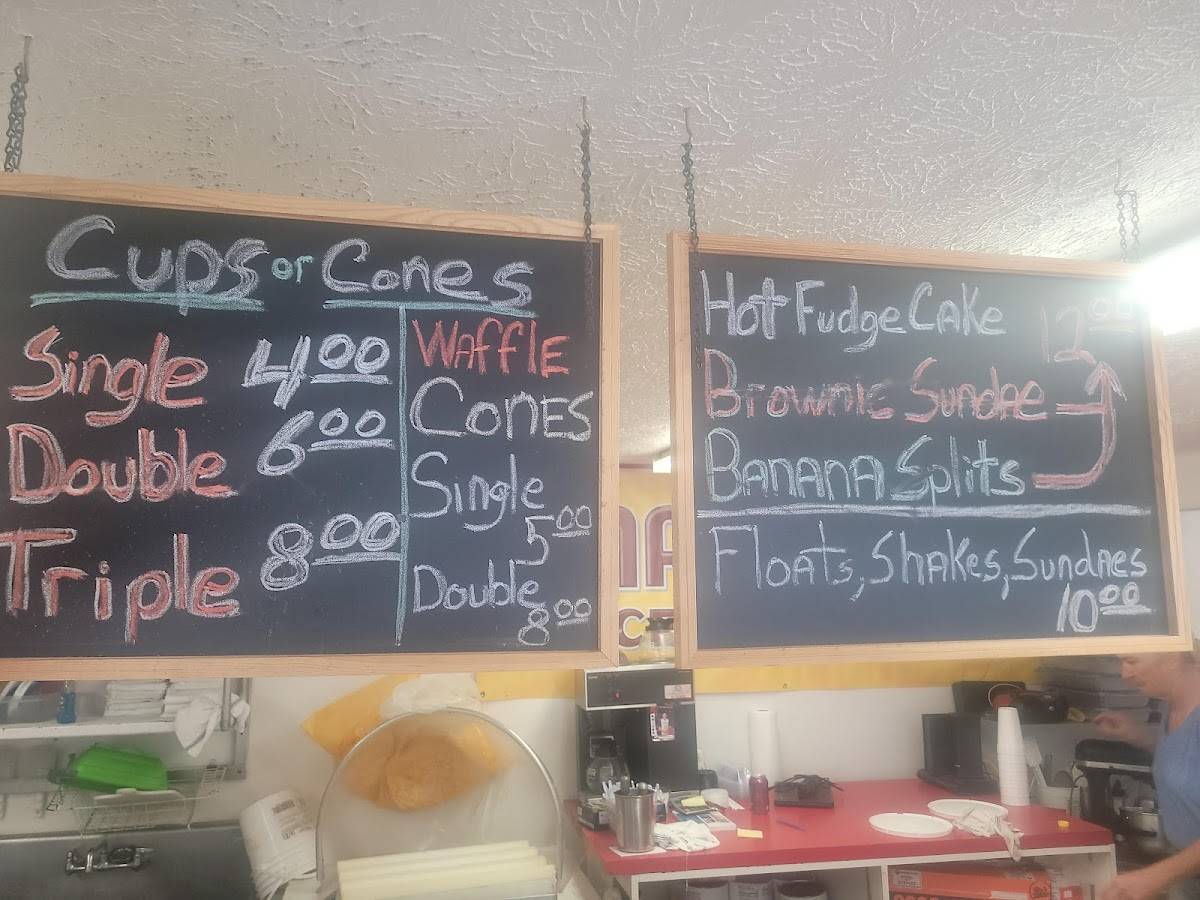 Cups or Cones
Single 4.00
Double 6.00
Triple 8.00
WAFFLE
CONES
Single
5.00
Double
8.00
Hot Fudge Cake 12.00
Brownie Sundae
BANANA Splits
Floats, Shakes, Sundaes
10.00